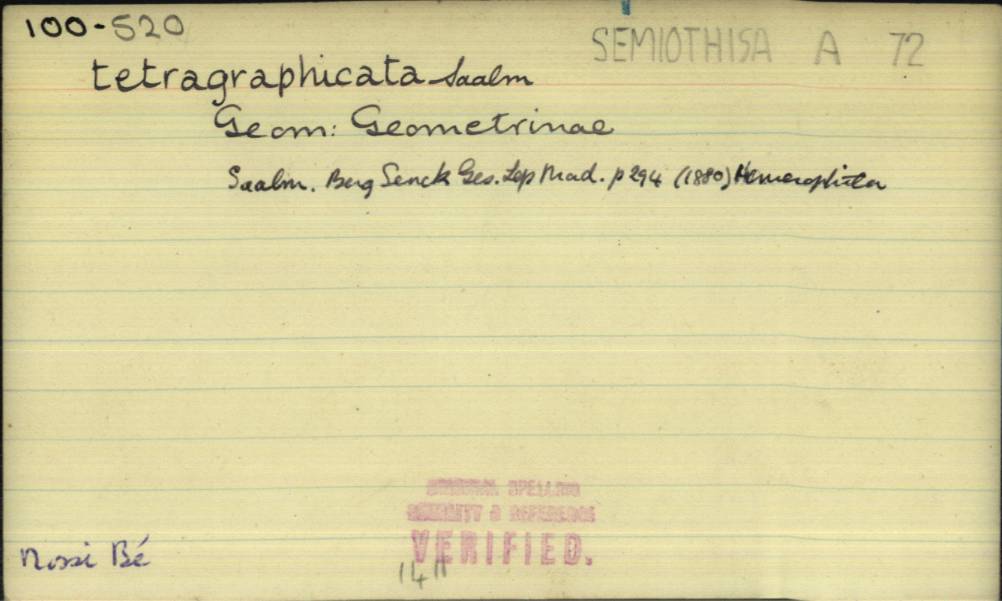 100-520
SEMIOTHISA A 72
tetragraphicata Saalm
Geom: Geometrinae
Saalm. Berg Senck Ges. Lep Mad. p 294 (1880) Hemerophila
SPELLING
& REFERENCE
VERIFIED.
Nossi Bé
14"